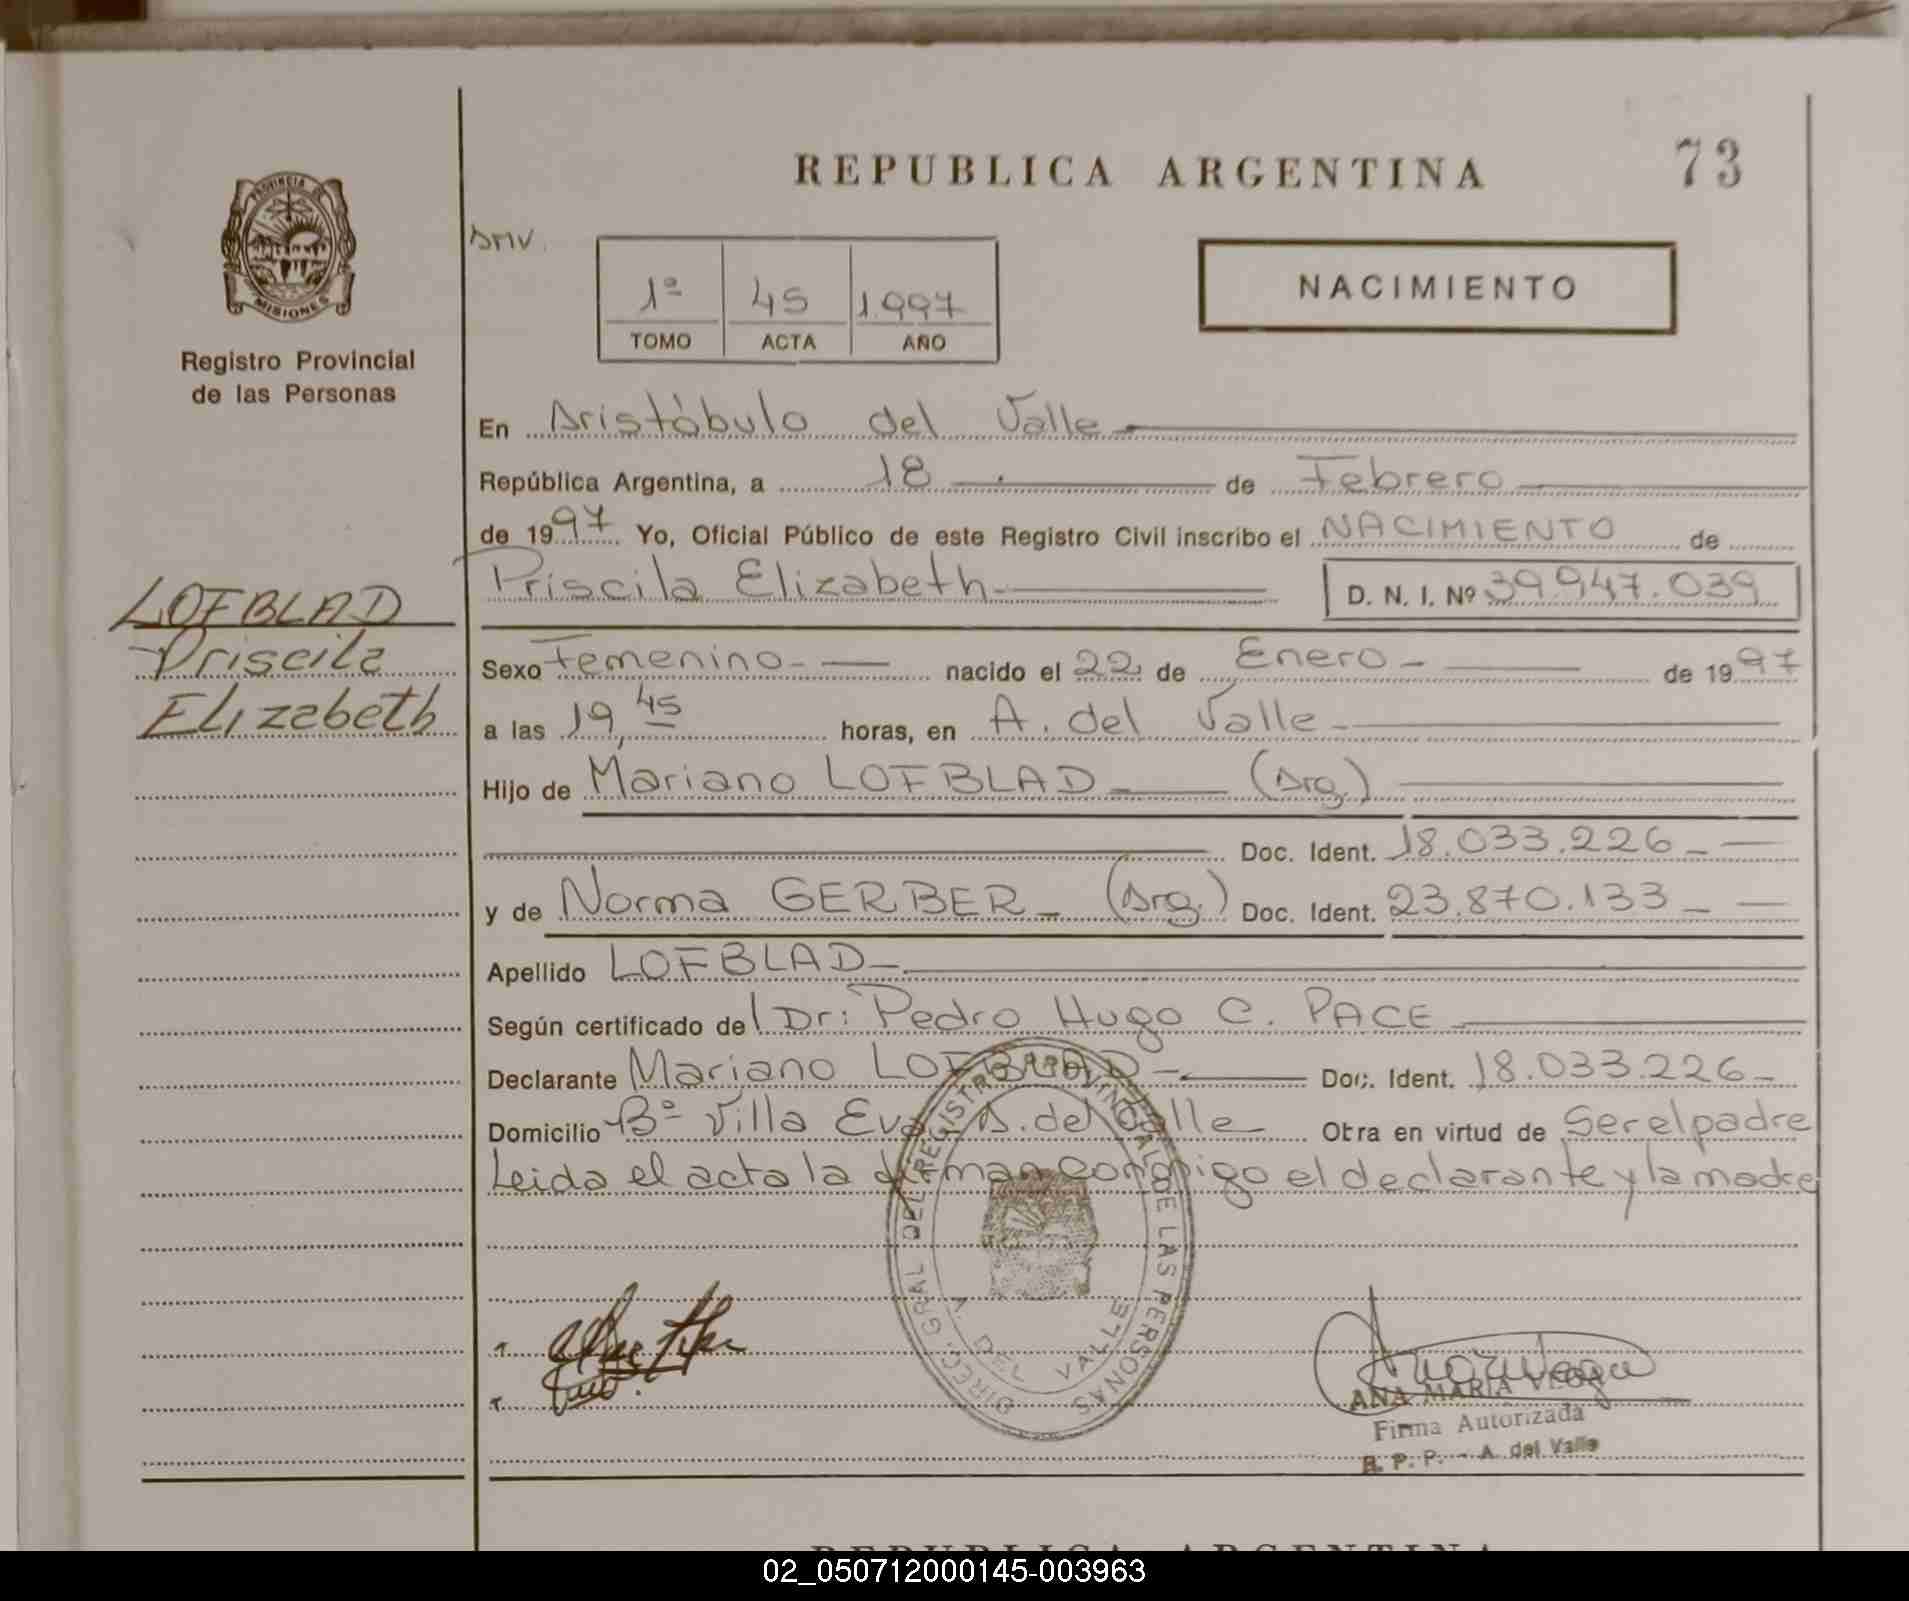 REPUBLICA ARGENTINA 73
PROVINCIA DE
MISIONES
Registro Provincial
de las Personas
1º 45 1.997
TOMO ACTA AÑO
NACIMIENTO
En Aristóbulo del Valle
República Argentina, a 18 de Febrero
de 1997 Yo, Oficial Público de este Registro Civil inscribo el NACIMIENTO de
Priscila Elizabeth D. N. I. Nº 39.947.039
LOFBLAD
Priscila
Elizabeth
Sexo Femenino nacido el 22 de Enero de 1997
a las 19,45 horas, en A. del Valle
Hijo de Mariano LOFBLAD (Arg.)
Doc. Ident. 18.033.226
y de Norma GERBER (Arg.) Doc. Ident. 23.870.133
Apellido LOFBLAD
Según certificado del Dr: Pedro Hugo C. PACE
Declarante Mariano LOFBLAD Doc. Ident. 18.033.226
Domicilio Bº Villa Eva A. del Valle Obra en virtud de Ser el padre
Leida el acta la firman conmigo el declarante y la madre
DIREC. GRAL DEL REGISTRO PROVINCIAL DE LAS PERSONAS
A. DEL VALLE
ANA MARIA VEGA
Firma Autorizada
R. P. P. - A. del Valle
REPUBLICA ARGENTINA
02_050712000145-003963